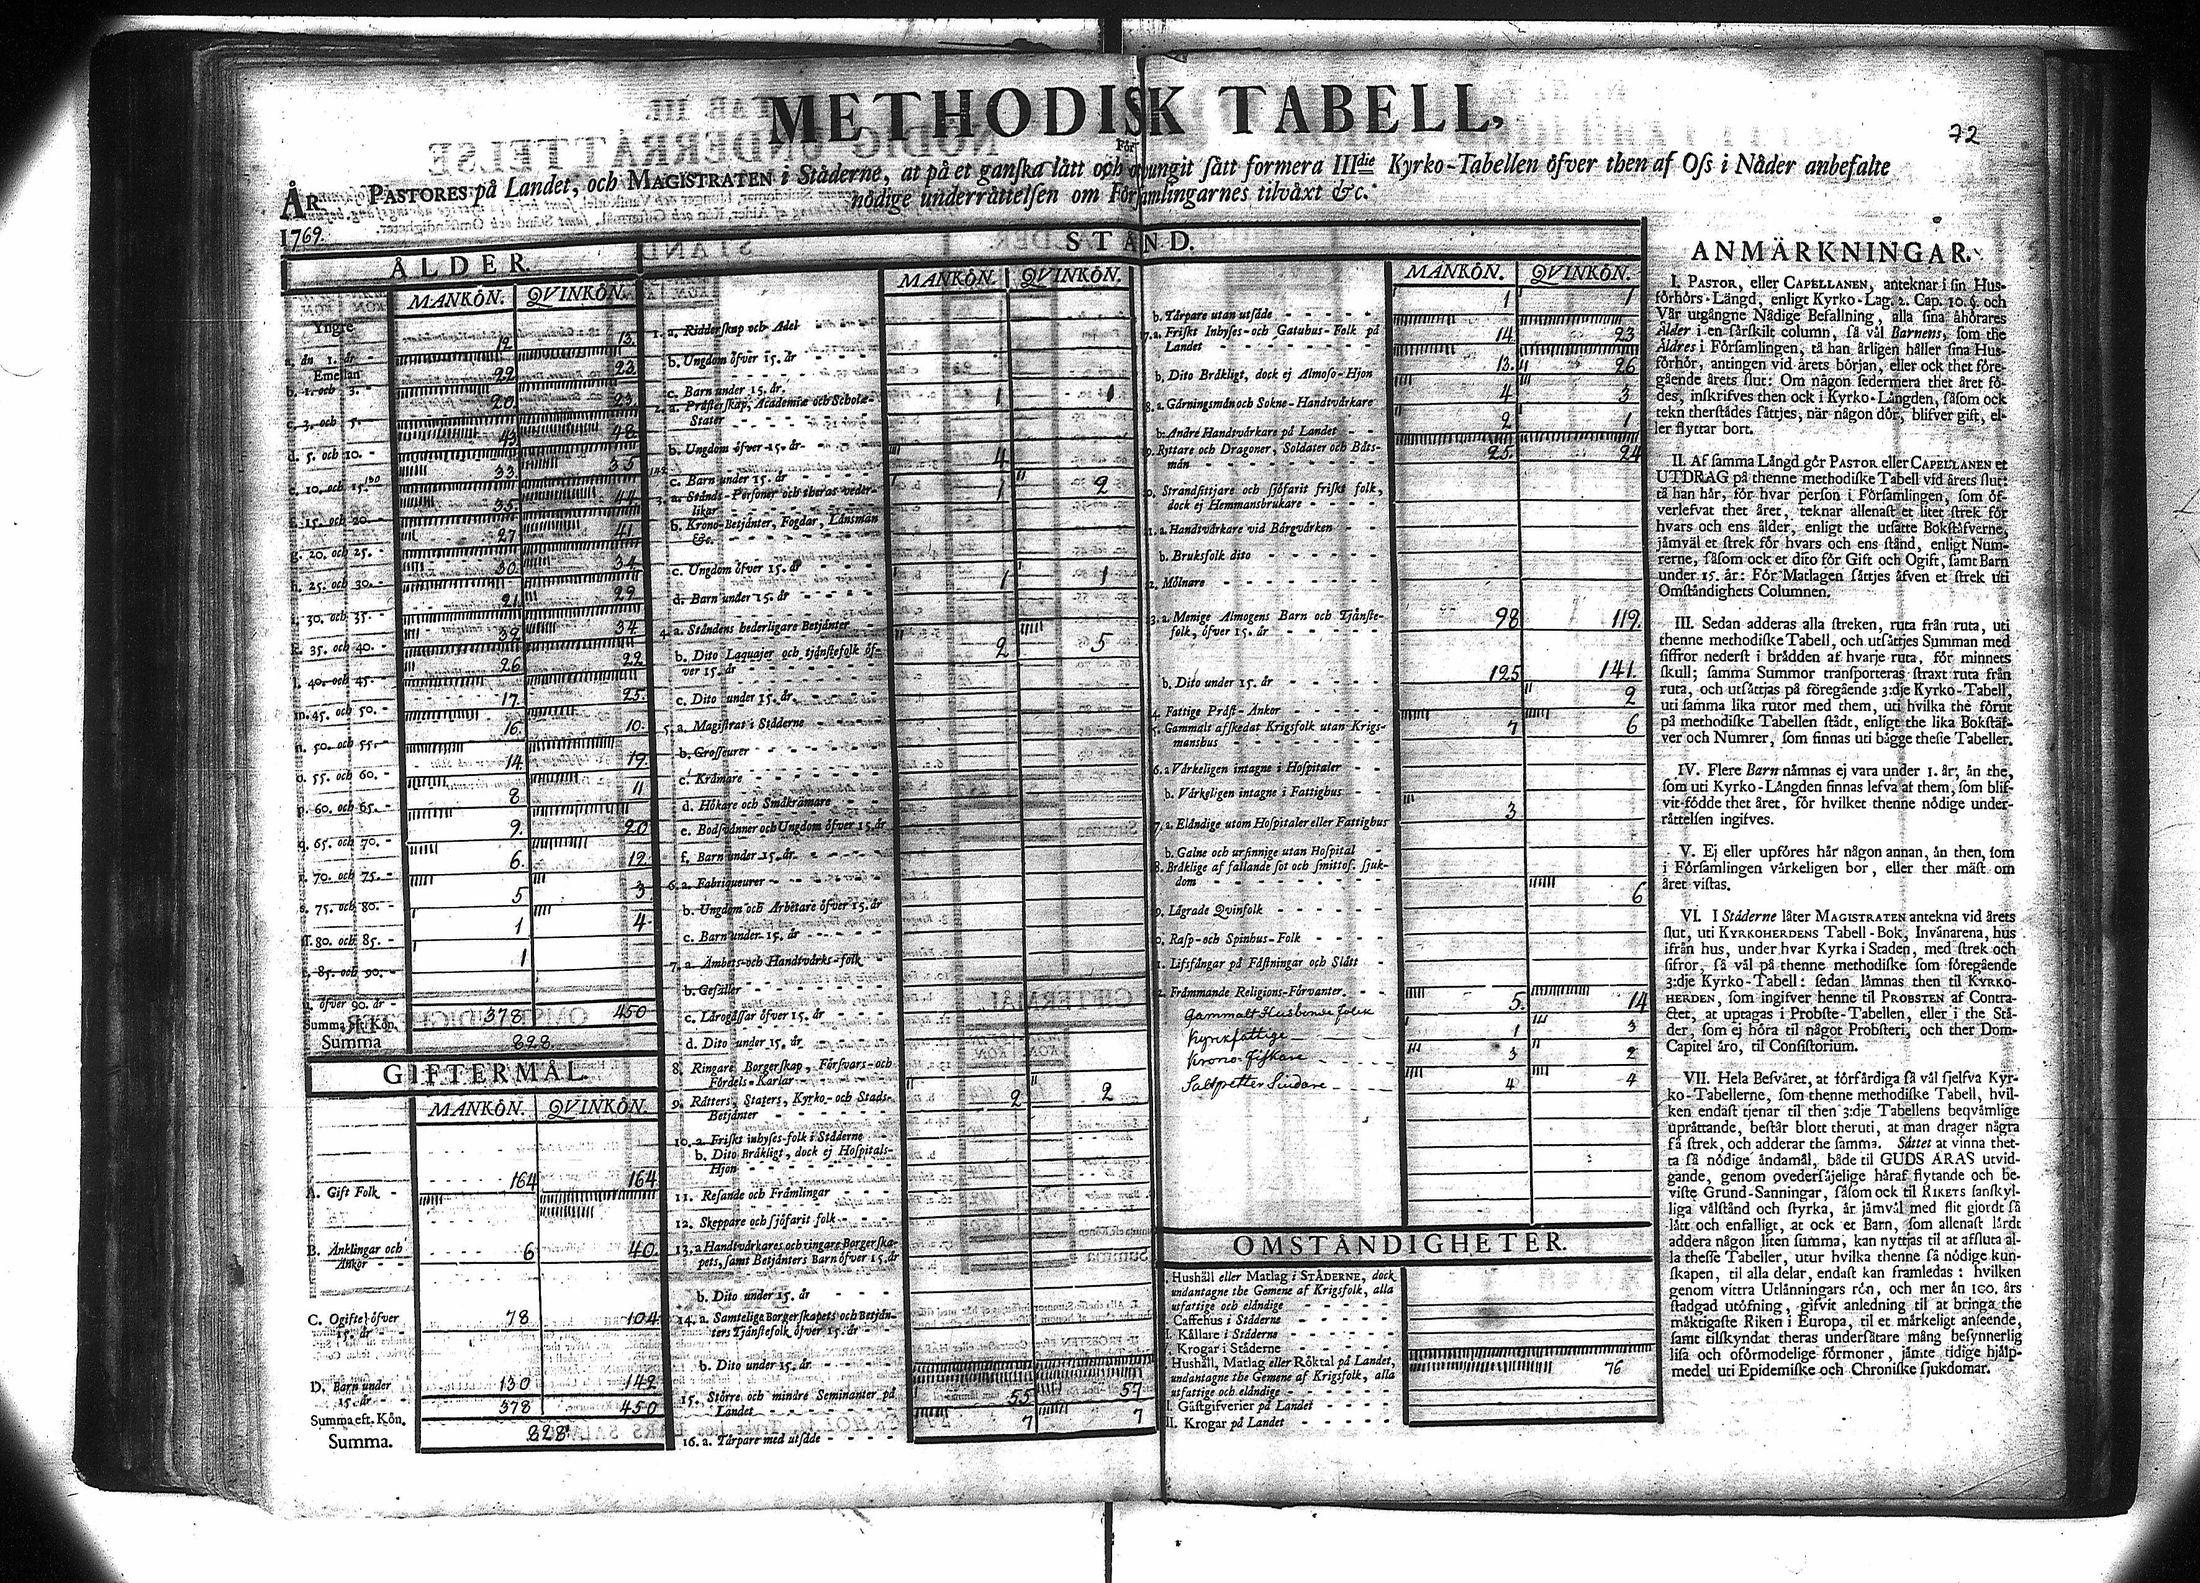 METHODISK TABELL,
72
För
PASTORES på Landet, och MAGISTRATEN i Städerne, at på et ganska lått och otvungit sått formera IIIdie Kyrko-Tabellen öfver then af Oss i Nåder anbefalte
nödige underråttelsen om Församlingarnes tilväxt &c.
ÅR
1769.
ÅLDER.
MANKÖN. QVINKÖN.
Yngre
a. än 1. år - 12. 13.
Emellan
b. 1. och 3. - 22 23
c. 3. och 5. - 20 23
d. 5. och 10. - 43 48
e. 10. och 15. 130 33 35 142
f. 15. och 20. - 35 44
g. 20. och 25. - 27 41
h. 25. och 30. - 30 34
i. 30. och 35. - 21 29
k. 35. och 40. - 39 34
l. 40. och 45. - 26 22
m. 45. och 50. - 17 25
n. 50. och 55. - 16. 10.
o. 55. och 60. - 14 19.
p. 60. och 65. - 8 11
q. 65. och 70. - 9. 20
r. 70. och 75. - 6. 12
s. 75. och 80. - 5 3
ff. 80. och 85. - 1 4
t. 85. och 90. - 1
u. öfver 90. år -
Summa eft. Kön. 378 450
Summa 828
GIFTERMÅL.
MANKÖN. QVINKÖN.
A. Gift Folk - 164 164
B. Änklingar och Änkor - 6 40
C. Ogifte öfver 15. år - 78 104
D. Barn under 15. år - 130 142
Summa eft. Kön. 378 450
Summa. 828
STÅND.
MANKÖN. QVINKÖN.
1. a. Ridderskap och Adel
b. Ungdom öfver 15. år
c. Barn under 15. år.
2. a. Prästerskap, Academiæ och Scholæ-
Stater 1 1
b. Ungdom öfver 15. år
c. Barn under 15. år 4
3. a. Stånds-Personer och theras veder-
likar 1 2
b. Krono-Betjänter, Fogdar, Länsmän
&c.
c. Ungdom öfver 15. år
d. Barn under 15. år 1 1
4. a. Ståndens hederligare Betjänter
b. Dito Laquajer och tjänstefolk öf-
ver 15. år 2 5
c. Dito under 15. år
5. a. Magistrat i Städerne
b. Grosseurer
c. Krämare
d. Hökare och Småkrämare
e. Bodsvänner och Ungdom öfver 15. år
f. Barn under 15. år
6. a. Fabriqueurer
b. Ungdom och Arbetare öfver 15. år
c. Barn under 15. år
7. a. Ämbets- och Handtvårks-folk
b. Gesäller
c. Lärogåssar öfver 15. år
d. Dito under 15. år
8. Ringare Borgerskap, Försvars- och
Fördels-Karlar
9. Råtters, Staters, Kyrko- och Stads-
Betjänter 2 2
10. a. Friskt inhyses-folk i Städerne
b. Dito Bräkligt, dock ej Hospitals-
Hjon
11. Resande och Främlingar
12. Skeppare och sjöfarit folk
13. a Handtvårkares och ringare Borgerska-
pets, samt Betjänters Barn öfver 15. år
b. Dito under 15. år
14. a. Samtelige Borgerskapets och Betjän-
ters Tjänstefolk öfver 15. år
b. Dito under 15. år
15. Större och mindre Seminanter på
Landet 55 57
16. a. Tårpare med utsäde 7 7
MANKÖN. QVINKÖN.
b. Tårpare utan utsäde 1 1
7. a. Friskt Inhyses- och Gatuhus-Folk på
Landet 14 23
b. Dito Bräkligt, dock ej Almoso-Hjon 13. 26
8. a. Gårningsmän och Sokne-Handtvårkare 4 3
b. Andre Handtvårkare på Landet 2 1
9. Ryttare och Dragoner, Soldater och Båts-
män 25. 24
0. Strandsittjare och sjöfarit friskt folk,
dock ej Hemmansbrukare
1. a. Handtvårkare vid Bårgvårken
b. Bruksfolk dito
2. Mölnare
3. a. Menige Almogens Barn och Tjänste-
folk, öfver 15. år 98 119.
b. Dito under 15. år 125 141.
4. Fattige Präst-Änkor 2
5. Gammalt afskedat Krigsfolk utan Krigs-
manshus 7 6
6. a Vårkeligen intagne i Hospitaler
b. Vårkeligen intagne i Fattighus
7. a. Eländige utom Hospitaler eller Fattighus 3
b. Galne och ursinnige utan Hospital
8. Bräklige af fallande sot och smittos. sjuk-
dom
9. Lägrade Qvinfolk 6
0. Rasp- och Spinhus-Folk
1. Lifsfångar på Fästningar och Slått
2. Främmande Religions-Förvanter
Gammalt Husbonde folck 5. 14
Kyrkfattige 1 3
Krono-Fiskare 3 2
Saltpetter Siudare 4 4
OMSTÄNDIGHETER.
Hushåll eller Matlag i STÅDERNE, dock
undantagne the Gemene af Krigsfolk, alla
utfattige och eländige
Caffehus i Städerne
Källare i Städerne
Krogar i Städerne
Hushåll, Matlag eller Röktal på Landet,
undantagne the Gemene af Krigsfolk, alla
utfattige och eländige 76
I. Gåstgifverier på Landet
II. Krogar på Landet
ANMÄRKNINGAR.
I. PASTOR, eller CAPELLANEN, anteknar i sin Hus-
förhörs-Längd, enligt Kyrko-Lag. 2. Cap. 10. §. och
Vår utgångne Nådige Befallning, alla sina åhörares
Ålder i en sårskilt column, så vål Barnens, som the
Åldres i Församlingen, tå han årligen håller sina Hus-
förhör, antingen vid årets början, eller ock thet före-
gående årets slut: Om någon sedermera thet året fö-
des, inskrifves then ock i Kyrko-Långden, såsom ock
tekn therstådes såttjes, når någon dör, blifver gift, el-
ler flyttar bort.
II. Af samma Långd gör PASTOR eller CAPELLANEN et
UTDRAG på thenne methodiske Tabell vid årets slut:
tå han hår, för hvar person i Församlingen, som öf-
verlefvat thet året, teknar allenast et litet strek för
hvars och ens ålder, enligt the utsatte Bokståfverne,
jåmvål et strek för hvars och ens stånd, enligt Num-
rerne, såsom ock et dito för Gift och Ogift, samt Barn
under 15. år: För Matlagen såttjes åfven et strek uti
Omståndighets Columnen.
III. Sedan adderas alla streken, ruta från ruta, uti
thenne methodiske Tabell, och utsåttjes Summan med
siffror nederst i brådden af hvarje ruta, för minnets
skull; samma Summor transporteras straxt ruta från
ruta, och utsåttjas på föregående 3:dje Kyrko-Tabell,
uti samma lika rutor med them, uti hvilka the förut
på methodiske Tabellen stådt, enligt the lika Bokståf-
ver och Numrer, som finnas uti bågge thesse Tabeller.
IV. Flere Barn nåmnas ej vara under 1. år, ån the,
som uti Kyrko-Långden finnas lefva af them, som blif-
vit födde thet året, för hvilket thenne nödige under-
råttelsen ingifves.
V. Ej eller upföres hår någon annan, ån then, som
i Församlingen vårkeligen bor, eller ther måst om
året vistas.
VI. I Städerne låter MAGISTRATEN antekna vid årets
slut, uti KYRKOHERDENS Tabell-Bok, Invånarena, hus
ifrån hus, under hvar Kyrka i Staden, med strek och
sifror, så vål på thenne methodiske som föregående
3:dje Kyrko-Tabell: sedan låmnas then til KYRKO-
HERDEN, som ingifver henne til PROBSTEN af Contra-
ctet, at uptagas i Probste-Tabellen, eller i the Stå-
der, som ej höra til något Probsteri, och ther Dom-
Capitel äro, til Consistorium.
VII. Hela Besväret, at förfårdiga så vål sjelfva Kyr-
ko-Tabellerne, som thenne methodiske Tabell, hvil-
ken endast tjenar til then 3:dje Tabellens beqvåmlige
upråttande, består blott theruti, at man drager några
få strek, och adderar the samma. Såttet at vinna thet-
ta så nödige åndamål, både til GUDS ÅRAS utvid-
gande, genom ovedersåjelige håraf flytande och be-
viste Grund-Sanningar, såsom ock til RIKETS sanskyl-
liga vålstånd och styrka, år jåmvål med flit gjordt så
lått och enfalligt, at ock et Barn, som allenast lårdt
addera någon liten summa, kan nyttjas til at afsluta al-
la thesse Tabeller, utur hvilka thenne så nödige kun-
skapen, til alla delar, endast kan framledas: hvilken
genom vittra Utlånningars rön, och mer ån 100. års
stadgad utöfning, gifvit anledning til at bringa the
måktigaste Riken i Europa, til et mårkeligt anseende,
samt tilskyndat theras undersåtare mång besynnerlig
lisa och oförmodelige förmoner, jåmte tidige hjålp-
medel uti Epidemiske och Chroniske sjukdomar.